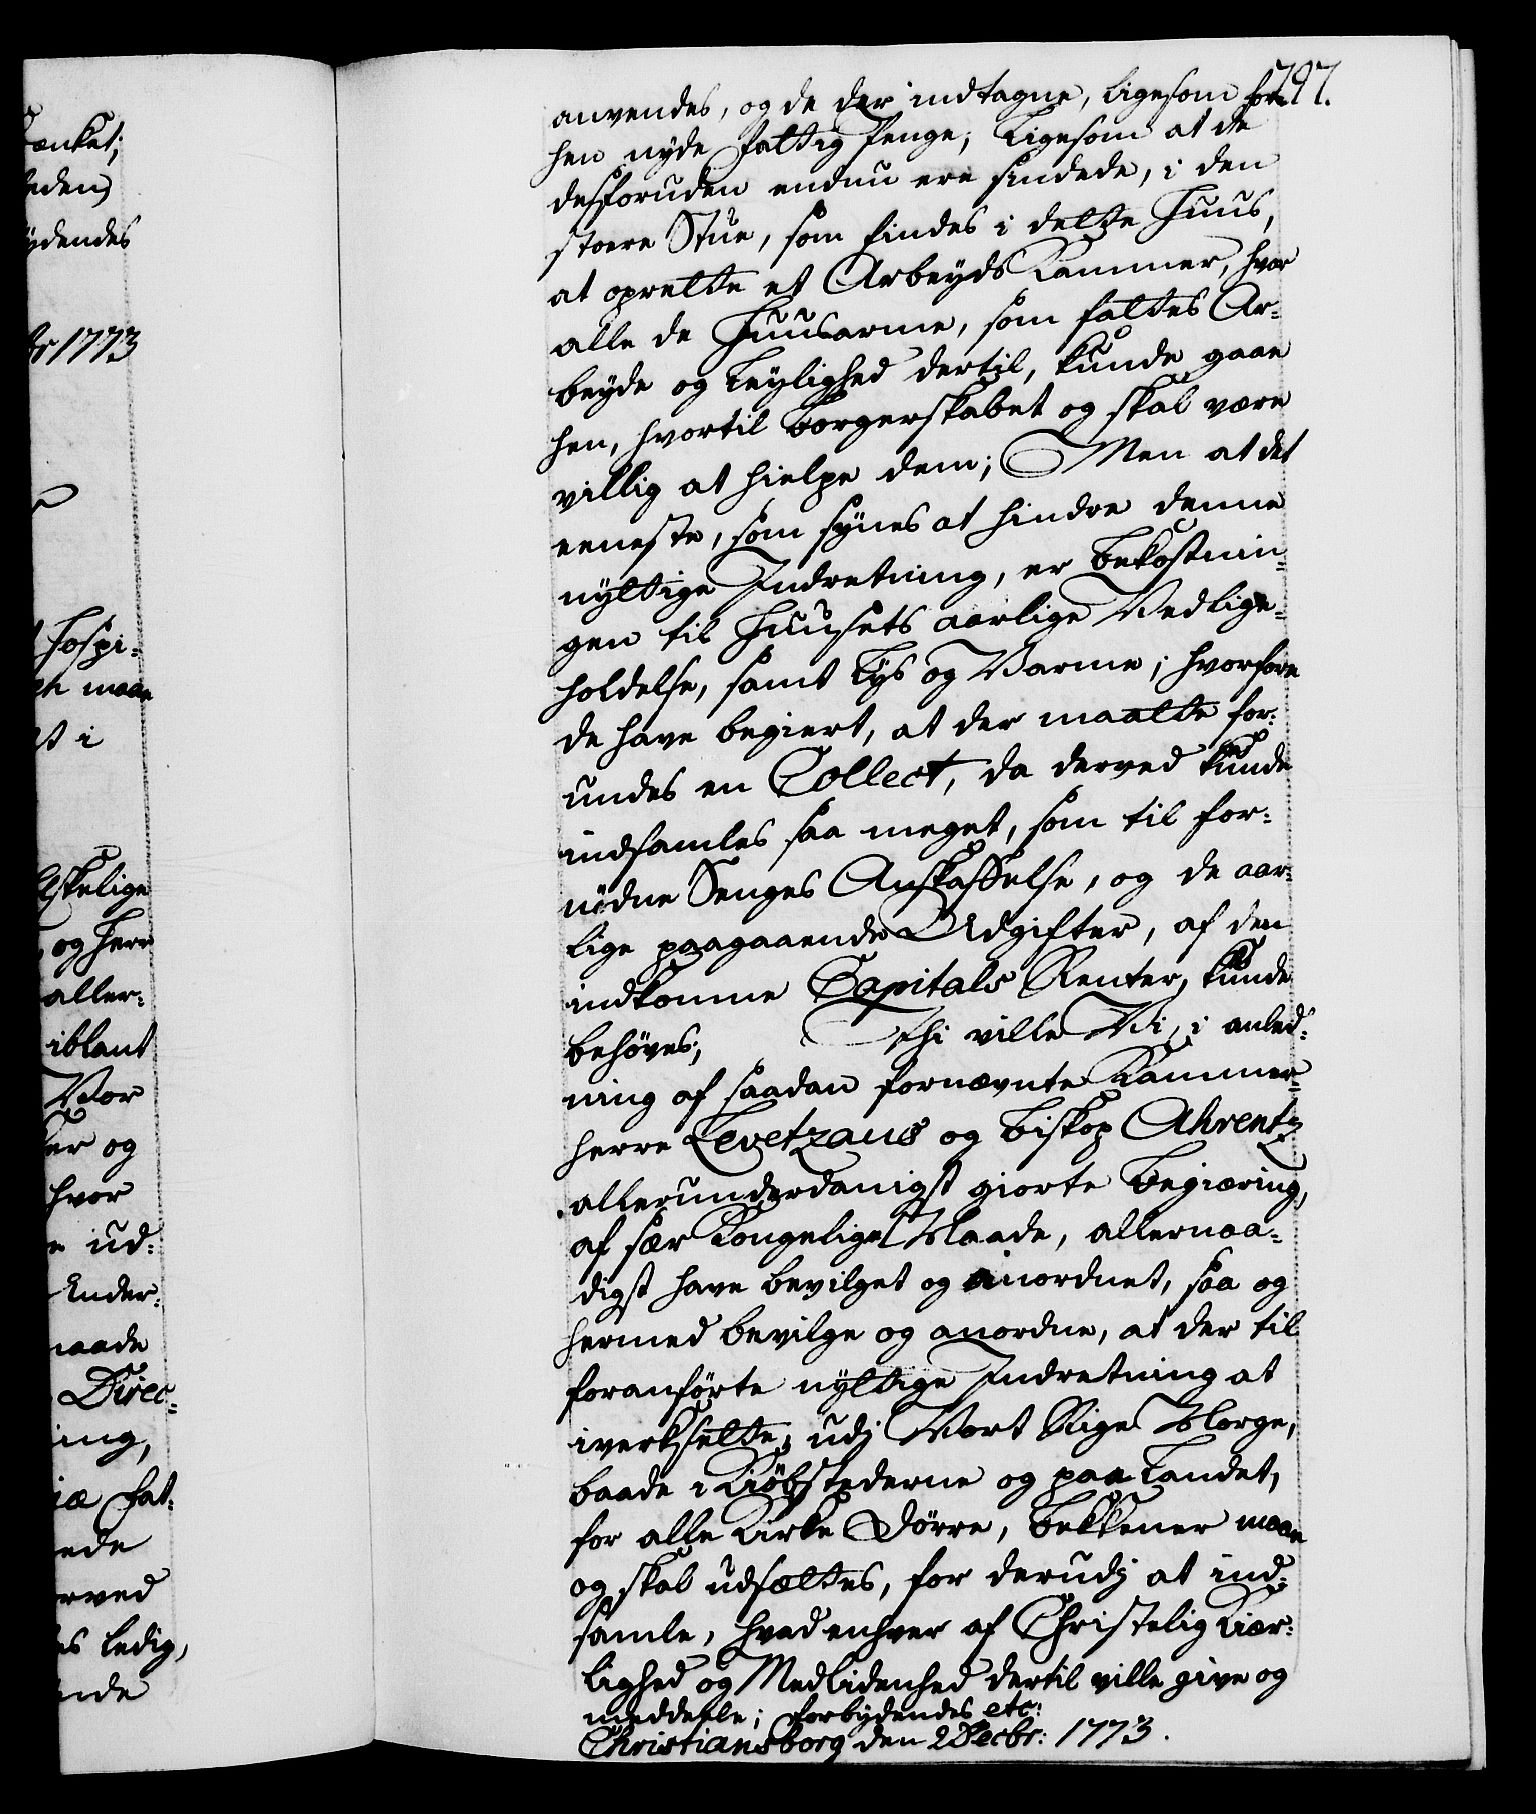 797.
anvendes, og de der indtagne, ligesom for
hen nyde Fattig Penge; Ligesom at de
desforuden endnu ere sindede, i den
store Stue, som findes i dette Huus,
at oprette et Arbeyds Kammer, hvor
alle de Huusarme, som fattes Ar-
beyde og Leylighed dertil, kunde gaae
hen, hvortil Borgerskabet og skal være
villig at hielpe dem; Men at det
eeneste, som synes at hindre denne
nyttige Indretning, er Bekostnin-
gen til Huusets aarlige Vedlige-
holdelse, samt Lys og Varme; hvorfore
de have begiert, at der maatte for-
undes en Collect, da derved kunde
indsamles saa meget, som til for-
nødne Senges Anskaffelse, og de aar-
lige paagaaende Udgifter, af den
indkomne Capitals Renter, kunde
behøves; Thi ville Vi, i anled-
ning af saadan fornævnte Kammer-
herre Levetzaus og Biskop Ahrentz
allerunderdanigst giorte Begiæring,
af sær Kongelige Naade, allernaa-
digst have bevilget og anordnet, saa og
hermed bevilge og anordne, at der til
foranførte nyttige Indretning at
iverksette, udj Vort Rige Norge,
baade i Kiøbstederne og paa Landet,
for alle Kirke Dørre, Bekkener maae
og skal udsættes, for derudj at ind-
samle, hvad enhver af Christelig Kiær-
lighed og Medlidenhed dertil ville give og
meddeele; Forbydendes etc:
Christiansborg den 2 Decbr: 1773.
ænket;
ydendes
br 1773
Hospi-
maae
et i
og Herr
aller-
iblant
Vor
er og
hvor
ud-
Under-
naade
Direc-
ing,
Fat-
ede
erved
es ledig,
ende